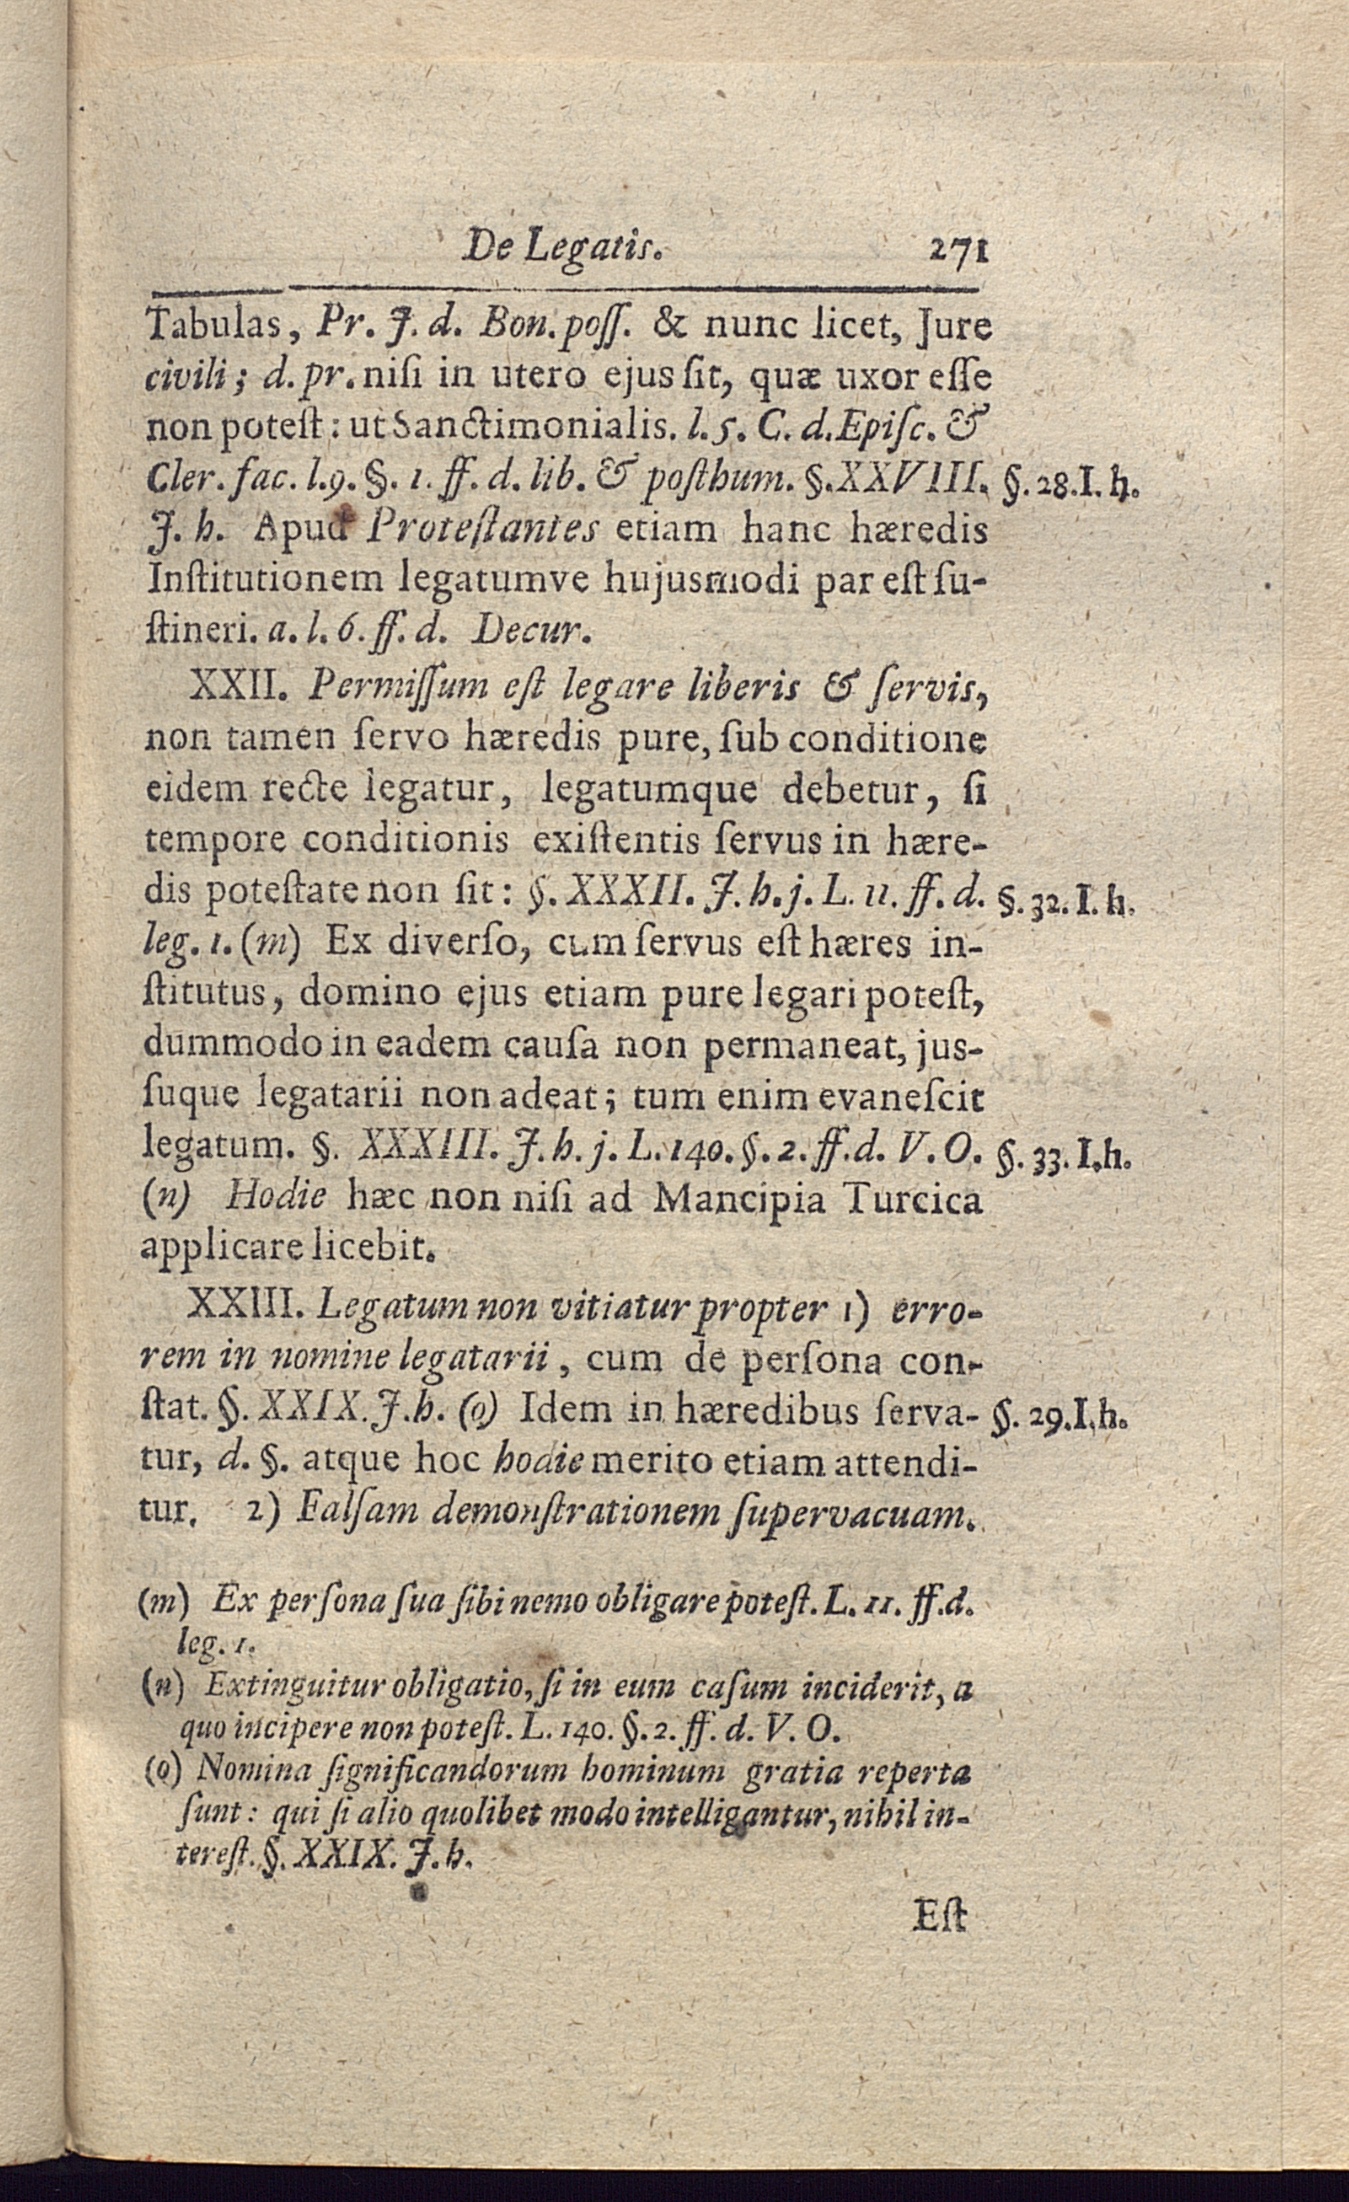 De Legatis. 271
Tabulas, Pr. J. d. Bon. poſſ. & nunc licet, Jure
civili; d. pr. niſi in utero ejus ſit, quæ uxor eſſe
non poteſt: ut Sanctimonialis. l. 5. C. d. Epiſc. &
Cler. fac. l. 9. §. 1. ff. d. lib. & poſthum. §. XXVIII. §. 28. I. h.
J. h. Apud Proteſtantes etiam hanc hæredis
Inſtitutionem legatumve hujusmodi par eſt ſu-
ſtineri. a. l. 6. ff. d. Decur.
XXII. Permiſſum eſt legare liberis & ſervis,
non tamen ſervo hæredis pure, ſub conditione
eidem recte legatur, legatumque debetur, ſi
tempore conditionis exiſtentis ſervus in hære-
dis poteſtate non ſit: §. XXXII. J. h. j. L. 11. ff. d. §. 32. I. h.
leg. 1. (m) Ex diverſo, cum ſervus eſt hæres in-
ſtitutus, domino ejus etiam pure legari poteſt,
dummodo in eadem cauſa non permaneat, jus-
ſuque legatarii non adeat; tum enim evaneſcit
legatum. §. XXXIII. J. h. j. L. 140. §. 2. ff. d. V. O. §. 33. I. h.
(n) Hodie hæc non niſi ad Mancipia Turcica
applicare licebit.
XXIII. Legatum non vitiatur propter 1) erro-
rem in nomine legatarii, cum de perſona con-
ſtat. §. XXIX. J. h. (o) Idem in hæredibus ſerva- §. 29. I. h.
tur, d. §. atque hoc hodie merito etiam attendi-
tur. 2) Falſam demonſtrationem ſupervacuam.
(m) Ex perſona ſua ſibi nemo obligare poteſt. L. 11. ff. d.
leg. 1.
(n) Extinguitur obligatio, ſi in eum caſum inciderit, a
quo incipere non poteſt. L. 140. §. 2. ff. d. V. O.
(o) Nomina ſignificandorum hominum gratia reperta
ſunt: qui ſi alio quolibet modo intelligantur, nihil in-
tereſt. §. XXIX. J. h.
Eſt